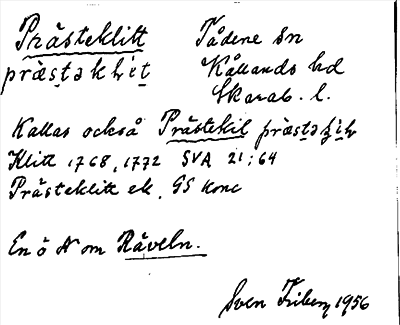 Prästeklitt
Tådene sn
Kållands hd
Skarab. l.
Kallas också Prästekil
Klitt 1768, 1772 SVA 21:64
Prästeklitt ek. GS konc
En ö N om Råveln.
Sven Friberg 1956